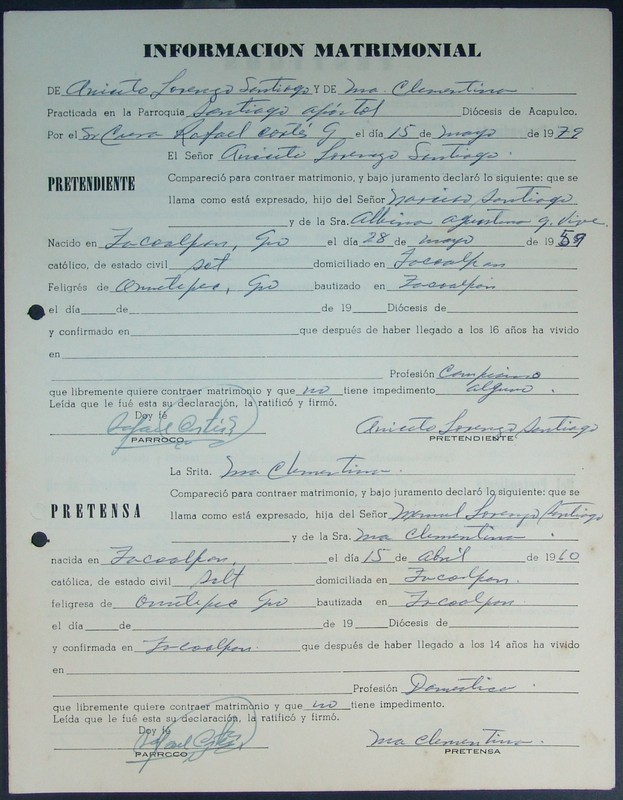 INFORMACION MATRIMONIAL
DE Aniceto Lorenzo Santiago Y DE Ma. Clementina
Practicada en la Parroquia Santiago apóstol Diócesis de Acapulco.
Por el Sr Cura Rafael Cortés G el día 15 de mayo de 1979
El Señor Aniceto Lorenzo Santiago.
PRETENDIENTE
Compareció para contraer matrimonio, y bajo juramento declaró lo siguiente: que se
llama como está expresado, hijo del Señor Narciso Santiago
y de la Sra. Albina Agustina q. vive.
Nacido en Zacoalpan, Gro el día 28 de mayo de 1959
católico, de estado civil solt domiciliado en Zacoalpan
Feligrés de Ometepec, Gro bautizado en Zacoalpan
el día de de 19 Diócesis de
y confirmado en que después de haber llegado a los 16 años ha vivido
en
Profesión Campesino
que libremente quiere contraer matrimonio y que no tiene impedimento alguno.
Leída que le fué esta su declaración, la ratificó y firmó.
Doy fé
Rafael Cortés G Aniceto Lorenzo Santiago
PARROCO PRETENDIENTE
La Srita. Ma Clementina.
PRETENSA
Compareció para contraer matrimonio, y bajo juramento declaró lo siguiente: que se
llama como está expresado, hija del Señor Manuel Lorenzo Santiago
y de la Sra. Ma Clementina.
nacida en Zacoalpan, el día 15 de abril de 1960
católica, de estado civil solt domiciliada en Zacoalpan.
feligresa de Ometepec Gro bautizada en Zacoalpan.
el día de de 19 Diócesis de
y confirmada en Zacoalpan. que después de haber llegado a los 14 años ha vivido
en
Profesión Domestica.
que libremente quiere contraer matrimonio y que no tiene impedimento.
Leída que le fué esta su declaración, la ratificó y firmó.
Doy fé
Rafael Cortés Ma Clementina.
PARROCO PRETENSA